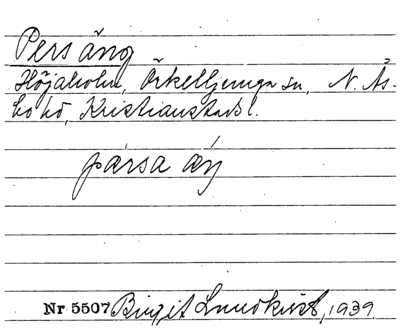 Pers äng
Höjaholm, Örkelljunga sn, N. Ås-
bo hd, Kristianstads l.
pærsa æŋ
Nr 5507 Birgit Lundkvist, 1939.